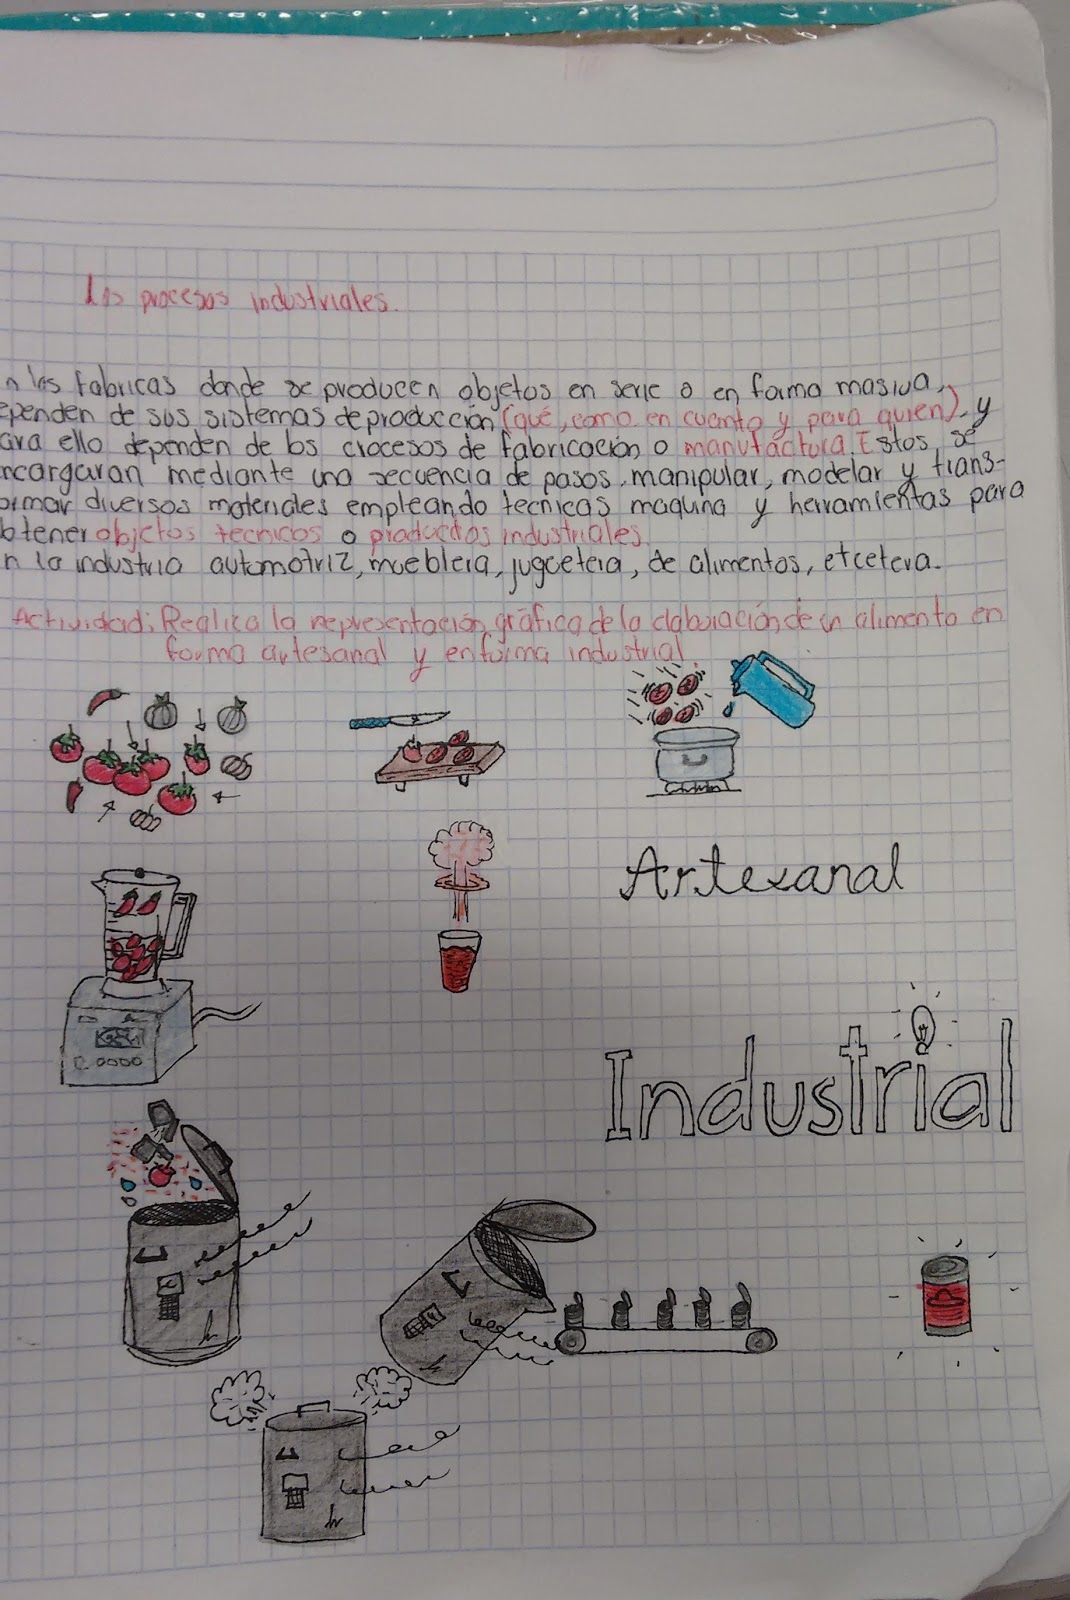 Los procesos industriales.
n las fabricas donde se producen objetos en serie o en forma masiva,
ependen de sus sistemas de producción (qué, como en cuanto y para quien). y
ara ello dependen de los crocesos de fabricación o manufactura. Estos, se
ncargaran mediante una secuencia de pasos, manipular, modelar y trans-
ormar diversos materiales empleando tecnicas maquina y herramientas para
btener objetos tecnicos o productos industriales.
n la industria automotriz, muebleria, jugceteria, de alimentos, etcetera.
Actividad: Realiza la representación gráfica de la elaboración de un alimento en
forma artesanal y en forma industrial
Artesanal
Industrial